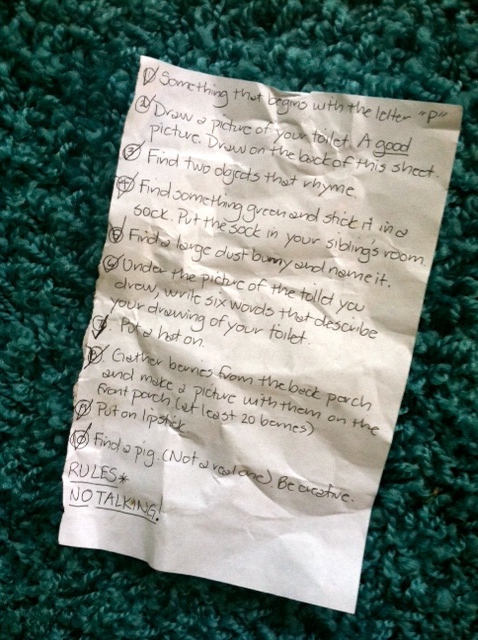 1) Something that begins with the letter "P"
2) Draw a picture of your toilet. A good
picture. Draw on the back of this sheet.
3) Find two objects that rhyme.
4) Find something green and stick it in a
sock. Put the sock in your sibling's room.
5) Find a large dust bunny and name it.
6) Under the picture of the toilet you
draw, write six words that describe
your drawing of your toilet.
7) Put a hat on.
8) Gather berries from the back porch
and make a picture with them on the
front porch (at least 20 berries)
9) Put on lipstick
10) Find a pig. (Not a real one) Be creative.
RULES*
NO TALKING!